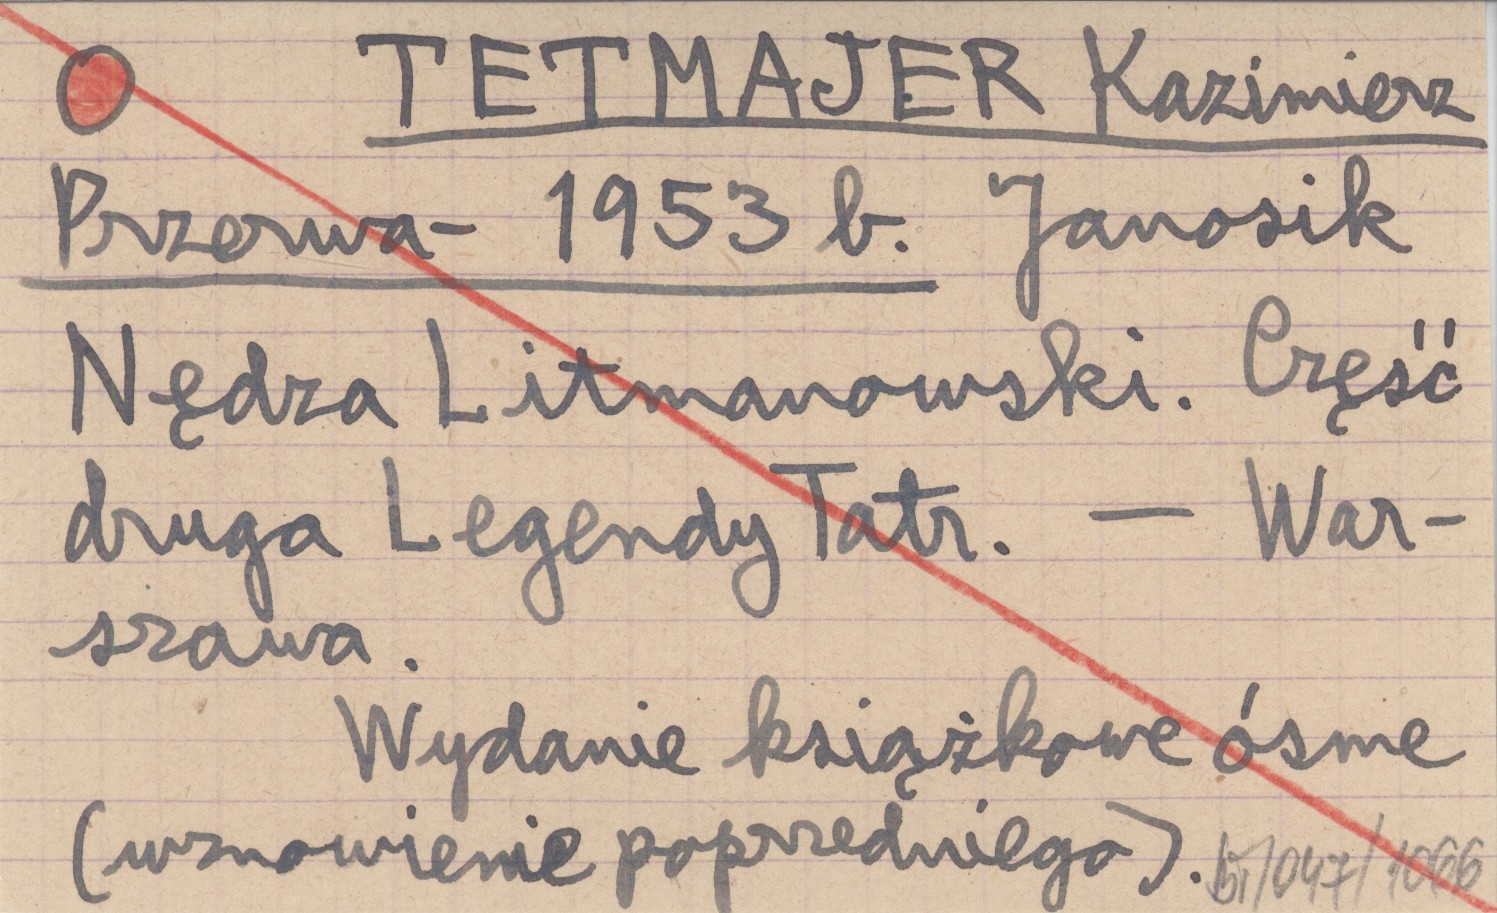 TETMAJER Kazimierz
Przerwa- 1953 b. Janosik
Nędza Litmanowski. Część
druga Legendy Tatr. — War-
szawa.
Wydanie książkowe ósme
(wznowienie poprzedniego).
/047/1066